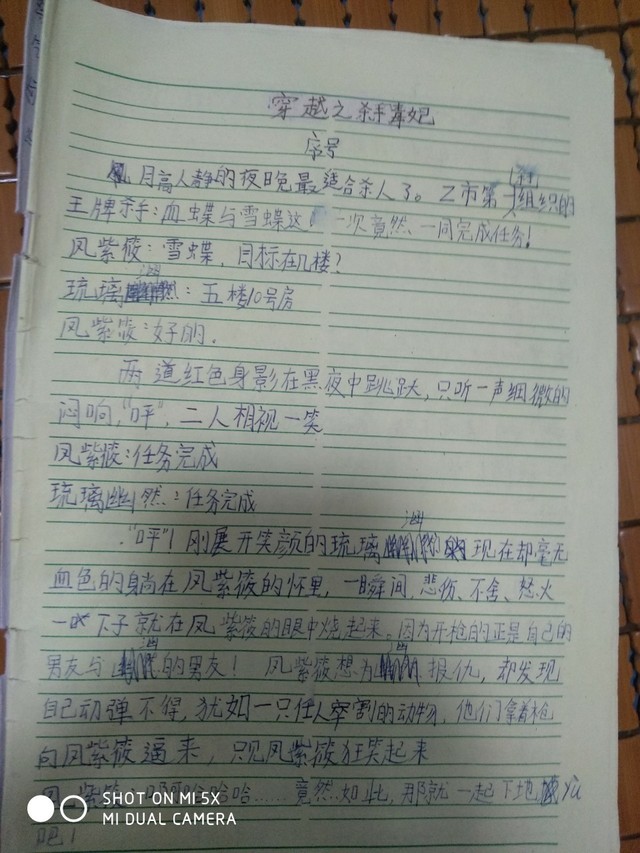 穿越之杀手毒妃
序号
月高人静的夜晚最适合杀人了。Z市第一组织的
王牌杀手：血蝶与雪蝶这一次竟然一同完成任务！
凤紫筱：雪蝶，目标在几楼？
琉璃幽然：五楼10号房
凤紫筱：好的.
两道红色身影在黑夜中跳跃，只听一声细微的
闷响，“呯”，二人相视一笑
凤紫筱：任务完成
琉璃幽然：任务完成
“呯”！刚展开笑颜的琉璃幽现在却毫无
血色的躺在凤紫筱的怀里，一瞬间，悲伤、不舍、怒火
一下子就在凤紫筱的眼中烧起来。因为开枪的正是自己的
男友与幽的男友！凤紫筱想为幽报仇，却发现
自己动弹不得，犹如一只任人宰割的动物，他们拿着枪
向凤紫筱逼来，只见凤紫筱狂笑起来
紫筱：哈哈哈……竟然如此，那就一起下地yu
吧！
SHOT ON MI 5X
MI DUAL CAMERA